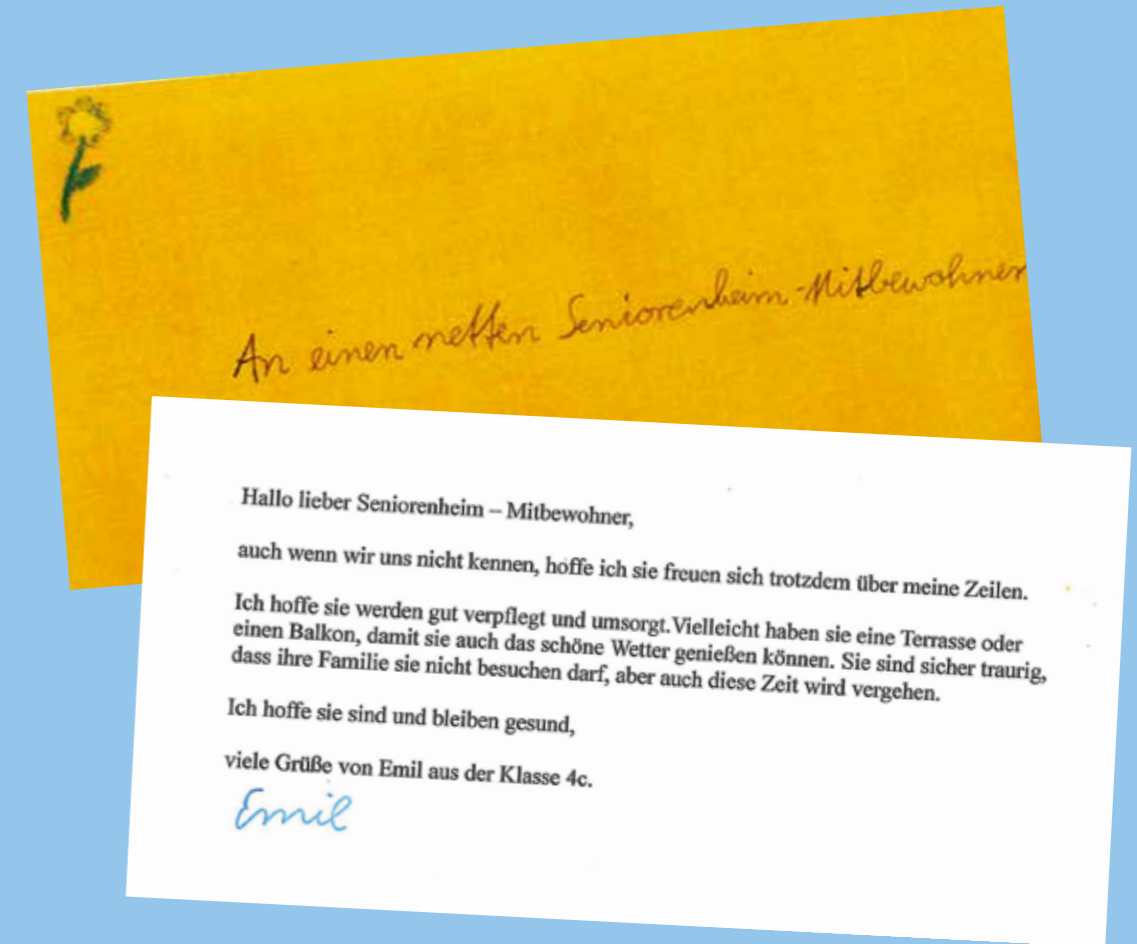 An einen netten Seniorenheim-Mitbewohner
Hallo lieber Seniorenheim – Mitbewohner,
auch wenn wir uns nicht kennen, hoffe ich sie freuen sich trotzdem über meine Zeilen.
Ich hoffe sie werden gut verpflegt und umsorgt.Vielleicht haben sie eine Terrasse oder
einen Balkon, damit sie auch das schöne Wetter genießen können. Sie sind sicher traurig,
dass ihre Familie sie nicht besuchen darf, aber auch diese Zeit wird vergehen.
Ich hoffe sie sind und bleiben gesund,
viele Grüße von Emil aus der Klasse 4c.
Emil